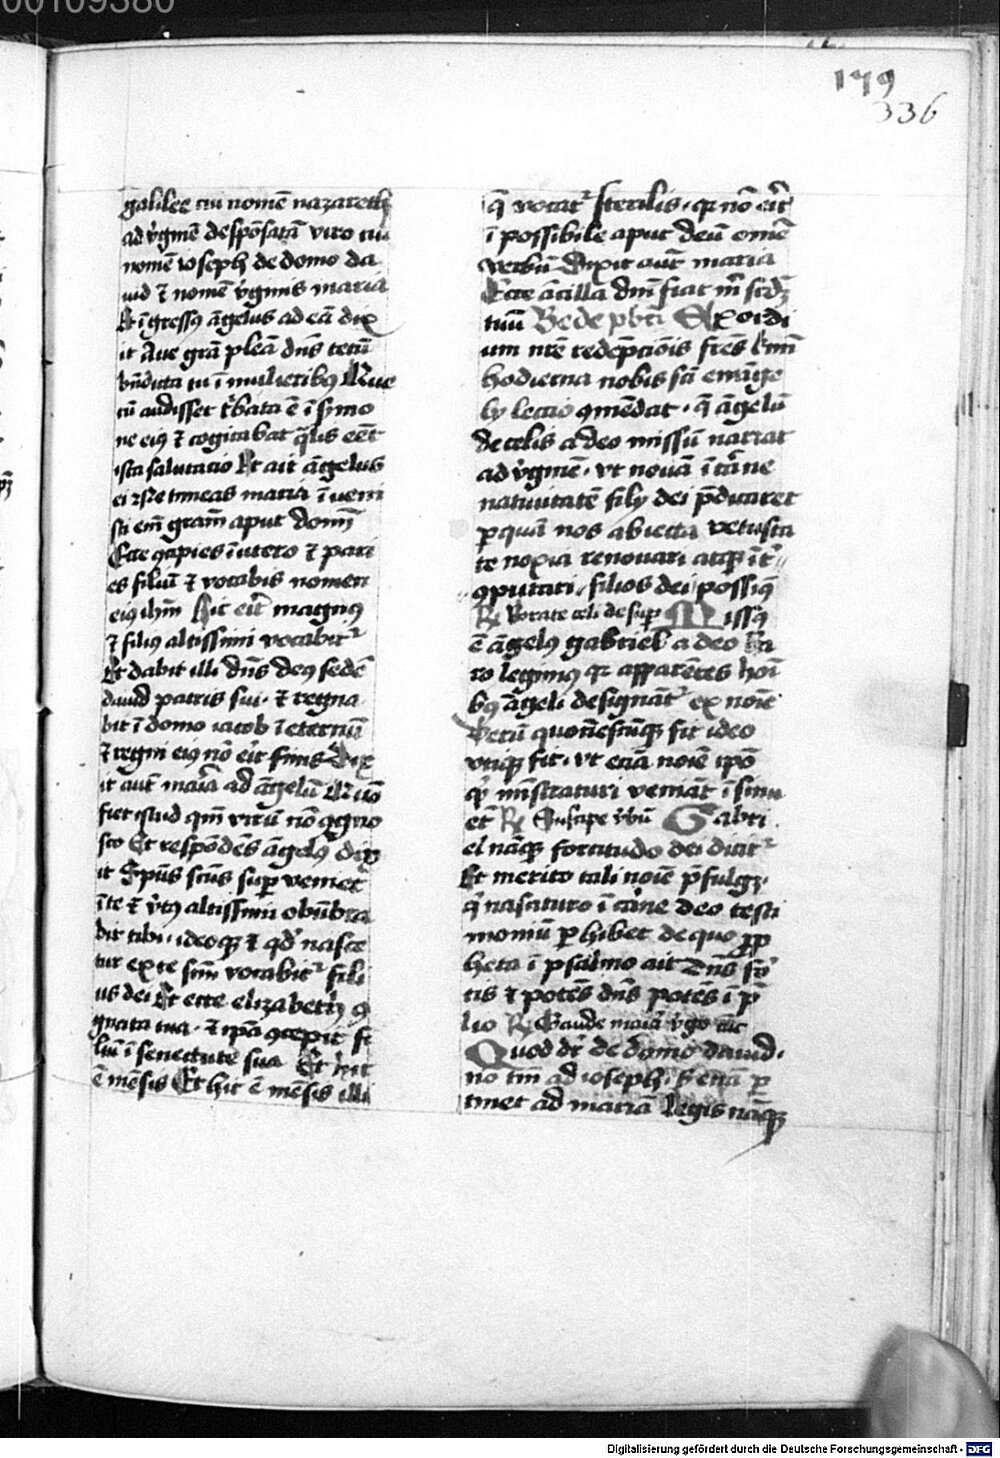 00109380
179
336
galilee cui nomē nazareth
ad v̓gīnē despōsatā viro cui
nomē ioseph de domo da
uid ⁊ nomē v̓gīnis maria
Et īgressꝰ āgelus ad eā dix
it Aue grā plēa dn̄s tecū
bn̄dicta tu ī mulieribꝰ Que
cū audisset t̓bata ē ī s̓mo
ne eiꝰ ⁊ cogitabat q̄lis eēt
ista salutacio Et ait āgelus
ei Ne timeas maria īueni
sti em̄ gram̄ aput dom̄
Ecce ꝯcipies ī utero ⁊ pari
es filiū ⁊ vocabis nomen
eiꝰ ihm̄ Hic erit̄ magnꝰ
⁊ filius altissimi vocabit᷑
Et dabit illi dn̄s deꝰ sedē
dauid patris sui ⁊ regna
bit ī domo iacob ī eternū
⁊ regni eiꝰ nō erit̄ finis Dix
it aut̄ maīa ad āgelū Quō
fiet istud qm̄ virū nō ꝯgno
sco Et respōdēs āgelꝰ dix
it Sp̄us sc̄us suꝑveniet
ī te ⁊ v̓tꝰ altissimi obūbra
bit tibi · ideoqꝫ ⁊ qd̓ nasce
tur ex te sc̄m vocabit᷑ fili
us dei Et ecce elizabeth ꝯ
gnata tua · ⁊ ip̄a ꝯcepit fi
liū ī senectute sua Et hic
ē mēsis Et hic ē mēsis illi
q̄ vocat᷑ sterilis · qr nō erit̄
ī possibile aput deū omē
verbū Dixit aut̄ maria
Ecce ācilla dn̄i fiat m̄ scd̄ꝫ
tuū Bede pb̄ri Exordi
um nr̄e redēpciōis fr̄es km̄i
hodierna nobis sc̄i ewāge
ly leccio ꝯmēdat · q̄ āgelū
de celis a deo missū narrat
ad v̓gīnē · vt nouā ī carne
natiuitatē fily dei p̄dicaret
ꝑ quā nos abiecta vetusta
te noxia renouari atqꝫ īt̓
ꝯputari · filios dei possimꝰ
℞ Rorate celi desuꝑ Missꝰ
ē āgelꝰ gabriel a deo Ra
ro legimꝰ qr apparētes hoī
bꝰ āgeli designāt᷑ ex noīe
Verū quociēscūqꝫ fit ideo
vtiqꝫ fit · vt eciā noīe ip̄o
q̓ m̄istraturi veniāt īsinu
et̄ ℞ Suscipe v̓bū Gabri
el nāqꝫ fortitudo dei dicit᷑
Et merito tali noīe p̄fulgꝫ
q̓ nascituro ī carne deo testi
moniū ꝑhibet de quo ꝓp
heta ī psalmo ait Dn̄s for
tis ⁊ potēs dn̄s potēs ī p̄
lio ℞ Gaude maīa v̓go cūc
Quod dr̄ de domo dauid ·
nō tm̄ ad ioseph · s̄ eciā ꝑ
tinet ad mariā Legis nāqꝫ
Digitalisierung gefördert durch die Deutsche Forschungsgemeinschaft - DFG